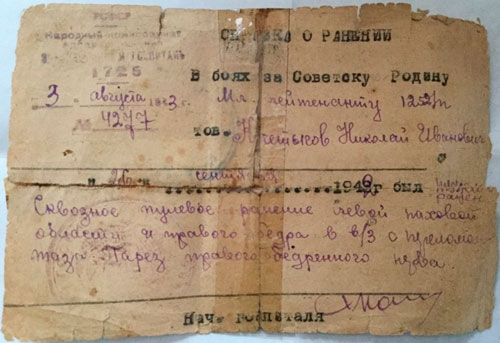 РСФСР
Народный комиссариат
1725
3 августа 1943 г.
№ 4247
СПРАВКА О РАНЕНИИ
В боях за Советску Родену
Мл. лейтенанту
тов. Николай Иванович
и 26 сентя 1942г был
Сквозное пулевое ранение левой паховой
области и правого бедра в в/3 с перелом
таза. Парез правого бедренного нерва.
Нач. госпиталя